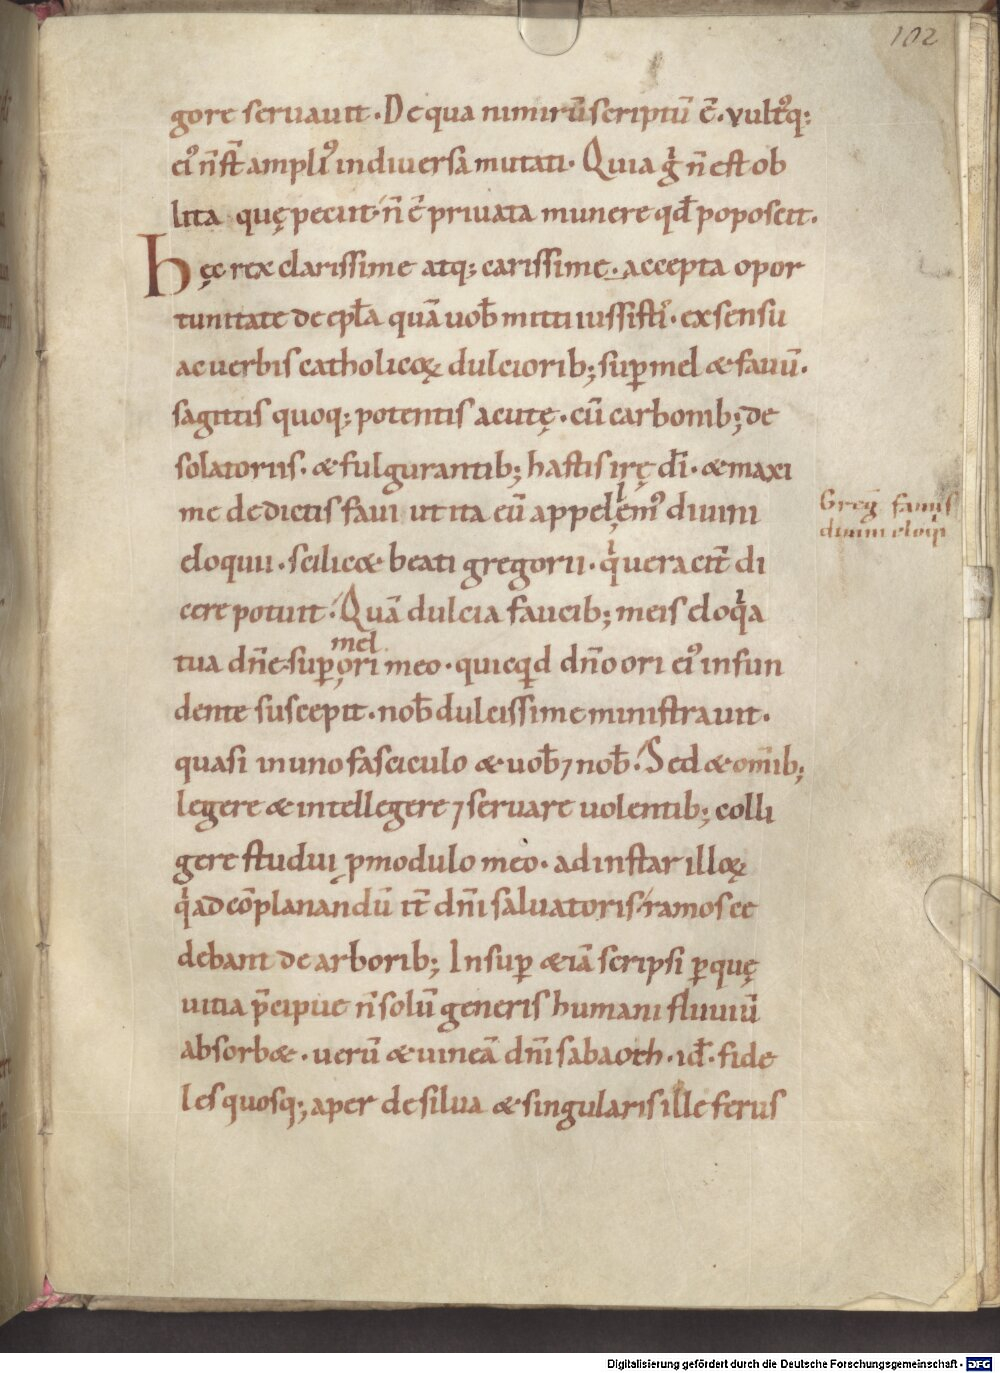 102
gore seruauit. De qua nimirū scriptū ē. vultꝰq;
eiꝰ n̄ st̄ ampliꝰ in diuersa mutati. Quia g̊ n̄ est ob
lita quę peciit. n̄ ē priuata munere qd̄ poposcit.
hęc rex clarissime atq; carissime. accepta opor
tunitate de epl̄a quā uob̄ mitti iussisti. ex sensu
ac uerbis catholicoꝝ dulciorib; suꝑ mel & fauū.
sagittis quoq; potentis acutę. cū carbonib; de
solatoriis. & fulgurantib; hastis irę dī. & maxi
me de dictis faui ut ita cū appellem diuini
eloquii. scilic& beati gregorii. qͥ ueracit̄ di
cere potuit. Quā dulcia faucib; meis eloqͥa
tua dn̄e. suꝑ mel ori meo. quicqͥd dn̄o ori eiꝰ infun
dente suscepit. nob̄ dulcissime ministrauit.
quasi in uno fasciculo & uob̄ ⁊ nob̄. Sed & omīb;
legere & intellegere ⁊ seruare uolentib; colli
gere studui ꝑ modulo meo. ad instar illoꝝ
qͥ ad cōplanandū it̄ dn̄i saluatoris ramos ce
debant de arborib; Insuꝑ &iā scripsi ꝑ quę
uitia p̄cipue n̄ solū generis humani fluuiū
absorb&. uerū & uineā dn̄i sabaoth. id̄. fide
les quosq; aper de silua & singularis ille ferus
Greg̅ fauus
diuini eloqͥi
Digitalisierung gefördert durch die Deutsche Forschungsgemeinschaft - DFG